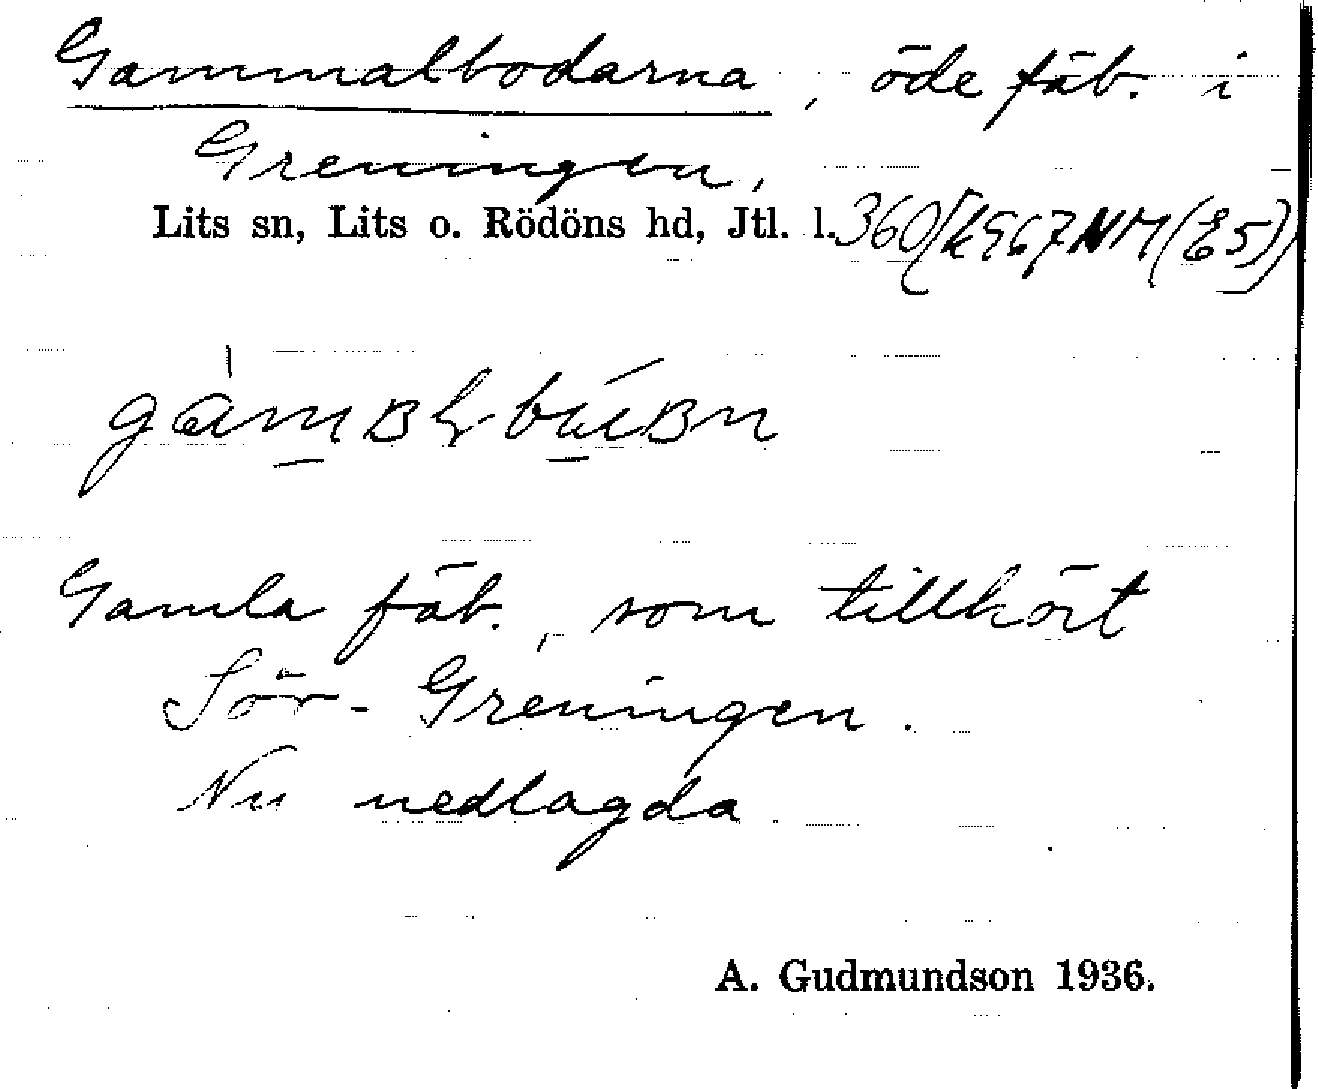 Gammalbodarna, öde fäb. i
Greningen,
Lits sn, Lits o. Rödöns hd, Jtl. l. 360
Gamla fäb., som tillhört
Sör-Greningen.
Nu nedlagda.
A. Gudmundson 1936.